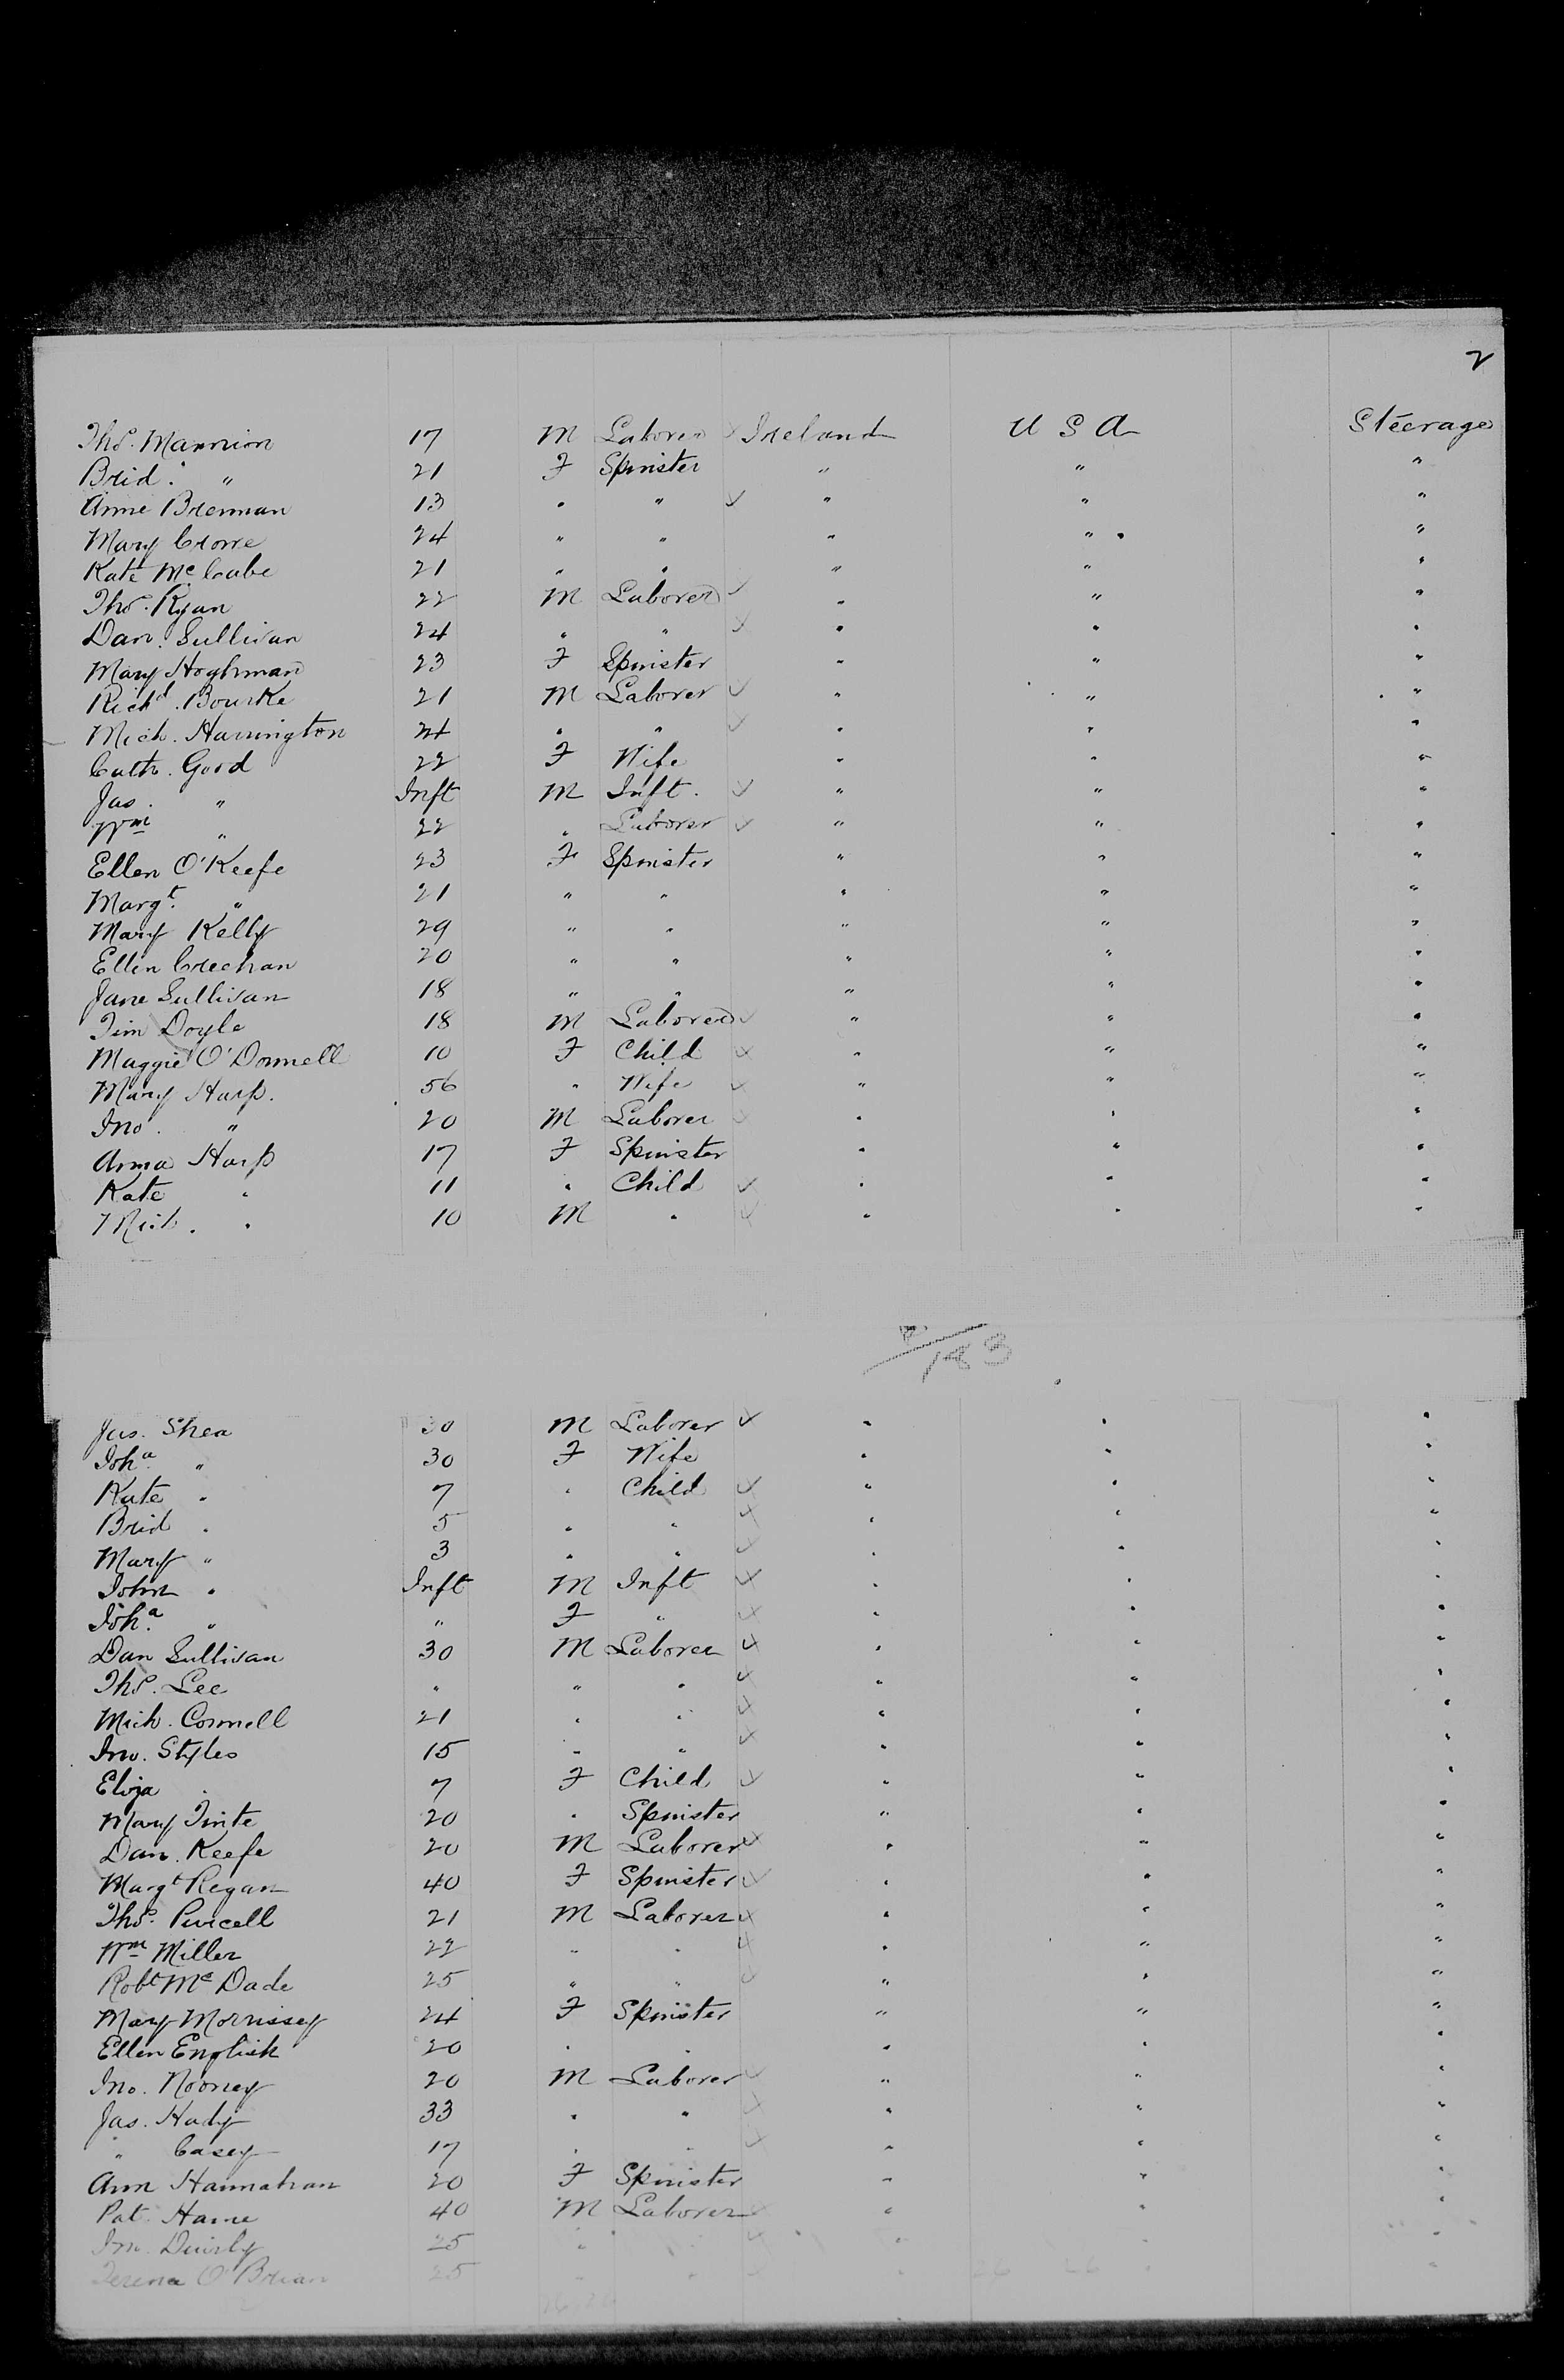 2
Thos. Mannion 17 M Laborer Ireland U S A Steerage
Brid. " 21 F Spinster " " "
Anne Brennan 13 " " " " "
Mary Crowe 24 " " " " "
Kate McCabe 21 " " " " "
Thos. Ryan 22 M Laborer " " "
Dan. Sullivan 24 " " " " "
Mary Hoghman 23 F Spinster " " "
Richd. Bourke 21 M Laborer " " "
Mich. Harrington 24 " " " " "
Cath. Good 22 F Wife " " "
Jas. " Inft M Inft. " " "
Wm " 22 " Laborer " " "
Ellen O'Keefe 23 F Spinster " " "
Margt. " 21 " " " " "
Mary Kelly 29 " " " " "
Ellen Creehan 20 " " " " "
Jane Sullivan 18 " " " " "
Tim Doyle 18 M Laborer " " "
Maggie O'Donnell 10 F Child " " "
Mary Harp. 56 " Wife " " "
Jno. " 20 M Laborer " " "
Anna Harp 17 F Spinster " " "
Kate " 11 " Child " " "
Mich. " 10 M " " " "
183
Jas. Shea 30 M Laborer " " "
Joha. " 30 F Wife " " "
Kate " 7 " Child " " "
Brid " 5 " " " " "
Mary " 3 " " " " "
John " Inft M Inft " " "
Joha. " " F " " " "
Dan Sullivan 30 M Laborer " " "
Thos. Lee " " " " " "
Mich. Connell 21 " " " " "
Jno. Styles 15 " " " " "
Eliza " 7 F Child " " "
Mary Tinte 20 " Spinster " " "
Dan. Keefe 20 M Laborer " " "
Margt Regan 40 F Spinster " " "
Thos. Purcell 21 M Laborer " " "
Wm Miller 22 " " " " "
Robt McDade 25 " " " " "
Mary Morrissey 24 F Spinster " " "
Ellen English 20 " " " " "
Jno. Rooney 20 M Laborer " " "
Jas. Hady 33 " " " " "
" Casey 17 " " " " "
Ann Hannahan 20 F Spinster " " "
Pat. Hame 40 M Laborer " " "
Jno. 25 " " " " "
O'Brian 25 " " " " "